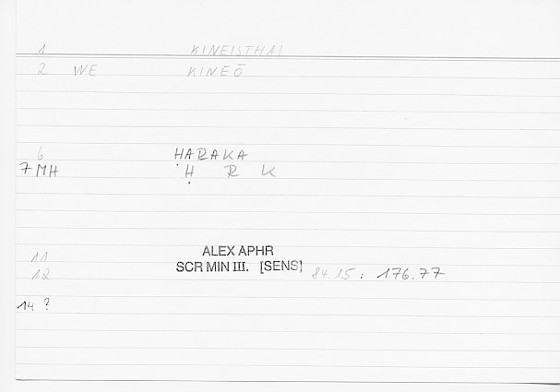 1 KINEISTHAI
2 WE KINEŌ
6 ḤARAKA
7 MH Ḥ R K
11 ALEX APHR
12 SCR MIN III. [SENS] 84.15 : 176.77
14 ?